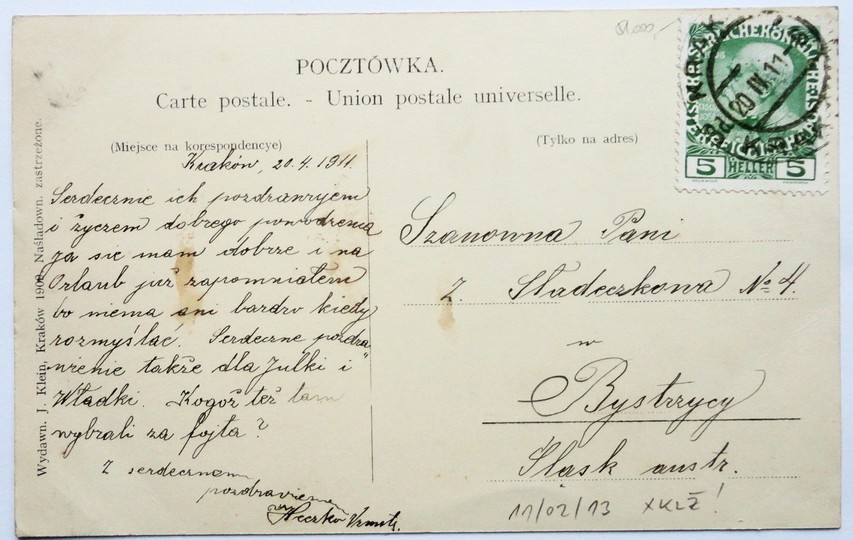 POCZTÓWKA.
Carte postale. - Union postale universelle.
(Miejsce na korespondencye)
(Tylko na adres)
Kraków, 20.4.1911.
Serdecznie ich pozdrawiyjem
i życzem dobrego powodzenia
ja sie mam dobrze i na
Orlaub już zapomniałem
bo niema ani bardzo kiedy
rozmyślać. Serdeczne pozdra-
wienie także dla Julki i
Władki. Kogoż też tam
wybrali za fojta?
Z serdecznem
pozdrawieniem
Heczko
Szanowna Pani
Z. Sladeczkowa № 4.
w
Bystrzycy
Śląsk austr.
11/02/13 XKLŻ!
Wydawn. J. Klein, Kraków 1908. Naśladown. zastrzeżone.
5 HELLER 5
20 IV 11